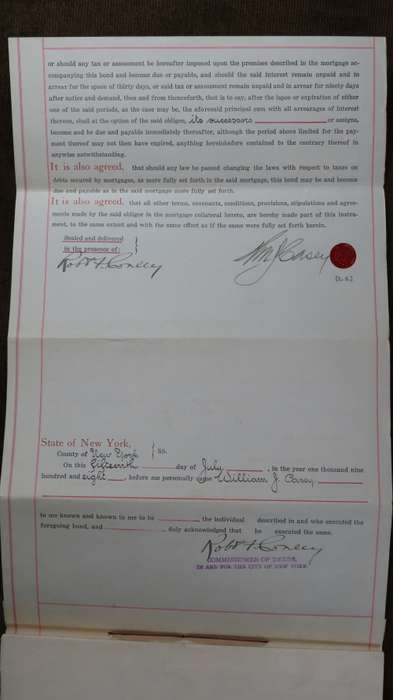 or should any tax or assessment be hereafter imposed upon the premises described in the mortgage ac-
companying this bond and become due or payable, and should the said interest remain unpaid and in
arrear for the space of thirty days, or said tax or assessment remain unpaid and in arrear for ninety days
after notice and demand, then and from thenceforth, that is to say, after the lapse or expiration of either
one of the said periods, as the case may be, the aforesaid principal sum with all arrearages of interest
thereon, shall at the option of the said obligee, its successors or assigns,
become and be due and payable immediately thereafter, although the period above limited for the pay-
ment thereof may not then have expired, anything hereinbefore contained to the contrary thereof in
anywise notwithstanding.
It is also agreed, that should any law be passed changing the laws with respect to taxes on
debts secured by mortgages, as more fully set forth in the said mortgage, this bond may be and become
due and payable as in the said mortgage more fully set forth.
It is also agreed, that all other terms, covenants, conditions, provisions, stipulations and agree-
ments made by the said obligor in the mortgage collateral hereto, are hereby made part of this instru-
ment, to the same extent and with the same effect as if the same were fully set forth herein.
Sealed and delivered
in the presence of:
Wm J Casey
Robt F Conley
[L. S.]
State of New York,
County of New York } ss.
On this fifteenth day of July, in the year one thousand nine
hundred and eight, before me personally came William J. Casey
to me known and known to me to be the individual described in and who executed the
foregoing bond, and duly acknowledged that he executed the same.
Robt F Conley
COMMISSIONER OF DEEDS,
IN AND FOR THE CITY OF NEW YORK